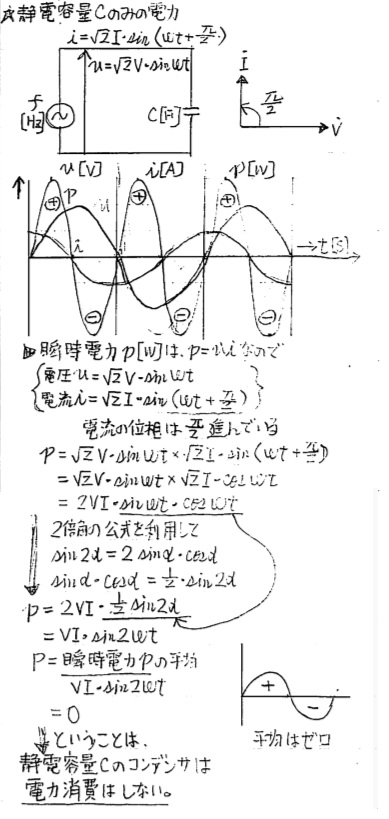 ☆静電容量Cのみの電力
i=√2I・sin(ωt+π/2)
u=√2V・sinωt
f
[Hz]
C[F]
İ
π/2
V̇
u[V] i[A] p[W]
+ p u + +
i
→t[s]
− −
瞬時電力p[W]は、p=uiなので
電圧u=√2V・sinωt
電流i=√2I・sin(ωt+π/2)
電流の位相はπ/2進んでいる
p=√2V・sinωt×√2I・sin(ωt+π/2)
=√2V・sinωt×√2I・cosωt
=2VI・sinωt・cosωt
2倍角の公式を利用して
sin2α=2sinα・cosα
sinα・cosα=1/2・sin2α
p=2VI・1/2sin2α
=VI・sin2ωt
P=瞬時電力pの平均
VI・sin2ωt
=0
+
−
平均はゼロ
ということは、
静電容量Cのコンデンサは
電力消費はしない。